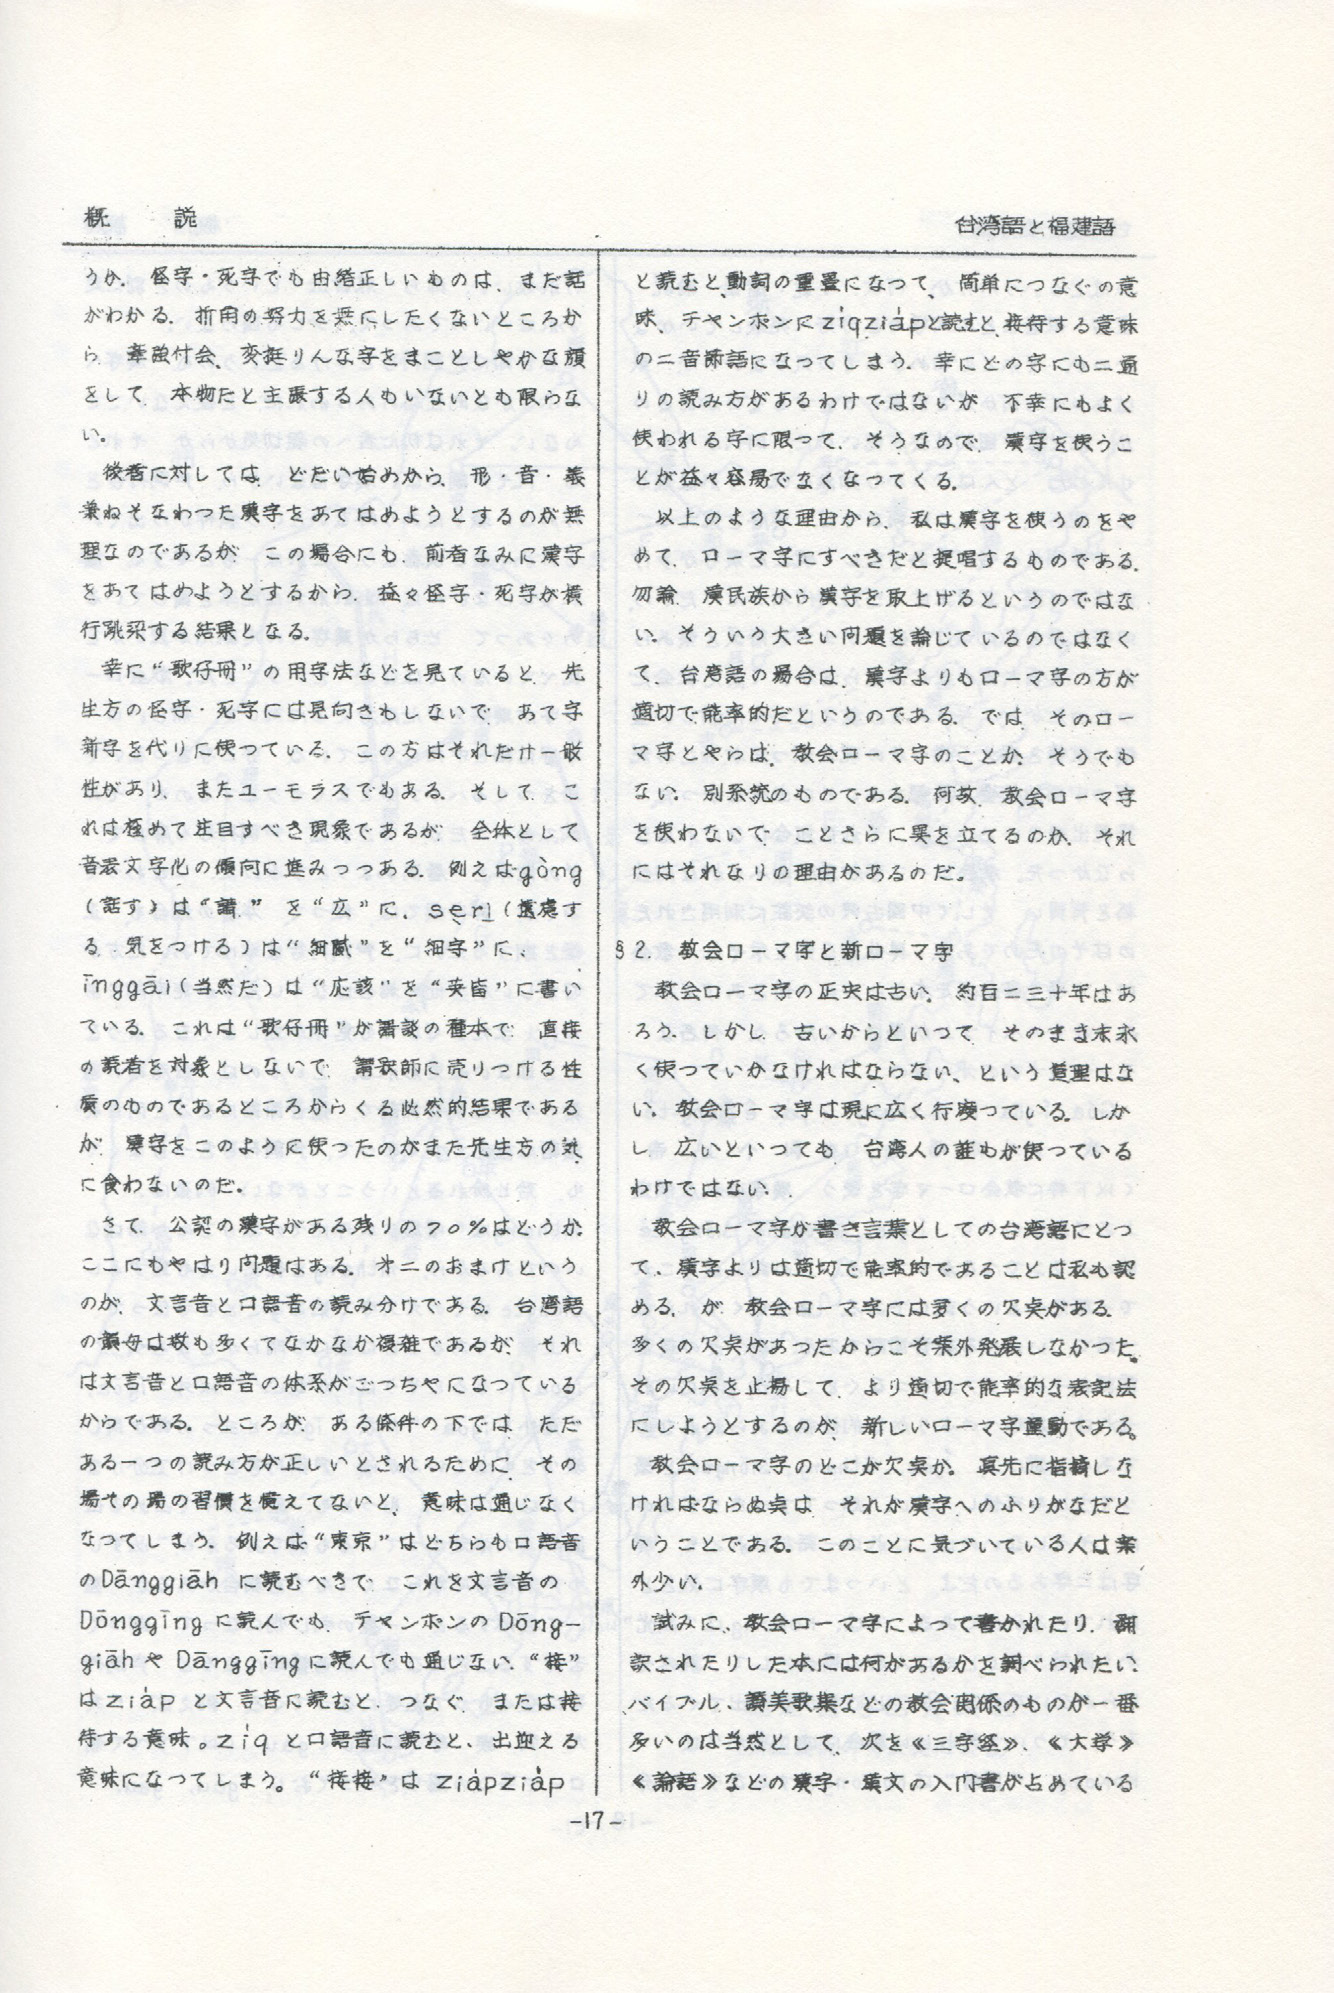 概　説
台湾語と福建語
うか。怪字・死字でも由緒正しいものは、まだ話
がわかる。折角の努力を無にしたくないところか
ら、牽強付会、変挺りんな字をまことしやかな顔
をして、本物だと主張する人もいないとも限らな
い。
後者に対しては、どだい始めから、形・音・義
兼ねそなわつた漢字をあてはめようとするのが無
理なのであるが、この場合にも、前者なみに漢字
をあてはめようとするから、益々怪字・死字が横
行跳梁する結果となる。
幸に“歌仔冊”の用字法などを見ていると、先
生方の怪字・死字には見向きもしないで、あて字
新字を代りに使つている。この方はそれだけ一般
性があり、またユーモラスでもある。そして、こ
れは極めて注目すべき現象であるが、全体として
音表文字化の傾向に進みつつある。例えばgòng
（話す）は“講”を“広”に、serī（遠慮す
る、気をつける）は“細膩”を“細字”に、
īnggāi（当然だ）は“応該”を“英皆”に書い
ている。これは“歌仔冊”が講談の種本で、直接
の読者を対象としないで、講釈師に売りつける性
質のものであるところからくる必然的結果である
が、漢字をこのように使ったのがまた先生方の気
に食わないのだ。
さて、公認の漢字がある残りの７０％はどうか。
ここにもやはり問題はある。オ二のおまけという
のが、文言音と口語音の読み分けである。台湾語
の韻母は数も多くてなかなか複雑であるが、それ
は文言音と口語音の体系がごっちやになつている
からである。ところが、ある条件の下では、ただ
ある一つの読み方が正しいとされるために、その
場その場の習慣を憶えてないと、意味は通じなく
なつてしまう。例えば“東京”はどちらも口語音
のDānggiāh に読むべきで、これを文言音の
Dōnggīng に読んでも、チャンポンの Dōng-
giāh や Dānggīng に読んでも通じない。“接”
は ziáp と文言音に読むと、つなぐ、または接
待する意味。zíq と口語音に読むと、出迎える
意味になつてしまう。“接接”は ziápziáp
と読むと、動詞の重畳になつて、簡単につなぐの意
味、チャンポンに zíqziápと読むと、接待する意味
の二音節語になってしまう。幸にどの字にも二通
りの読み方があるわけではないが、不幸にもよく
使われる字に限つて、そうなので、漢字を使うこ
とが益々容易でなくなつてくる。
以上のような理由から、私は漢字を使うのをや
めて、ローマ字にすべきだと提唱するものである。
勿論、漢民族から漢字を取上げるというのではな
い。そういう大きい問題を論じているのではなく
て、台湾語の場合は、漢字よりもローマ字の方が
適切で能率的だというのである。では、そのロー
マ字とやらは、教会ローマ字のことか。そうでも
ない。別系統のものである。何故、教会ローマ字
を使わないで、ことさらに異を立てるのか。それ
にはそれなりの理由があるのだ。
§２．教会ローマ字と新ローマ字
教会ローマ字の歴史は古い。約百二三十年はあ
ろう。しかし、古いからといつて、そのまま末永
く使つていかなければならない、という道理はな
い。教会ローマ字は現に広く行渡つている。しか
し、広いといつても、台湾人の誰もが使つている
わけではない。
教会ローマ字が書き言葉としての台湾語にとつ
て、漢字よりは適切で能率的であることは私も認
める。が、教会ローマ字には多くの欠点がある。
多くの欠点があったからこそ案外発展しなかつた。
その欠点を止揚して、より適切で能率的な表記法
にしようとするのが、新しいローマ字運動である。
教会ローマ字のどこが欠点か。真先に指摘しな
ければならぬ点は、それが漢字へのふりがなだと
いうことである。このことに気づいている人は案
外少い。
試みに、教会ローマ字によって書かれたり、翻
訳されたりした本には何があるかを調べられたい。
バイブル、讃美歌集などの教会関係のものが一番
多いのは当然として、次を《三字経》、《大学》
《論語》などの漢字・漢文の入門書が占めている
-17-